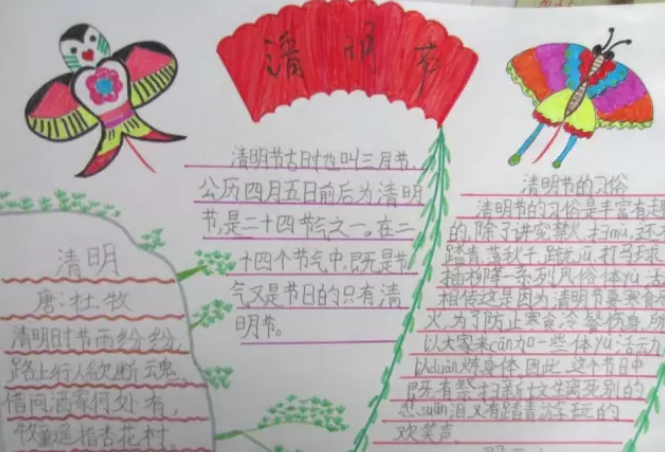 清明节
清明节古时也叫三月节，
公历四月五日前后为清明
节，是二十四节气之一。在二
十四个节气中，既是节
气又是节日的只有清
明节。
清明
唐：杜牧
清明时节雨纷纷，
路上行人欲断魂。
借问酒家何处有，
牧童遥指杏花村。
清明节的习俗
清明节的习俗是丰富有趣
的，除了讲究禁火、扫mù，还有
踏青、荡秋千、蹴jū、打马球、
插柳等一系列风俗体yù活
相传这是因为清明节要寒食
火，为了防止寒食冷餐伤身，所
以大家来cān加一些体yù活动，
以duàn炼身体。因此，这个节日中
既有祭扫新坟生离死别的
悲suān泪，又有踏青游玩的
欢笑声。